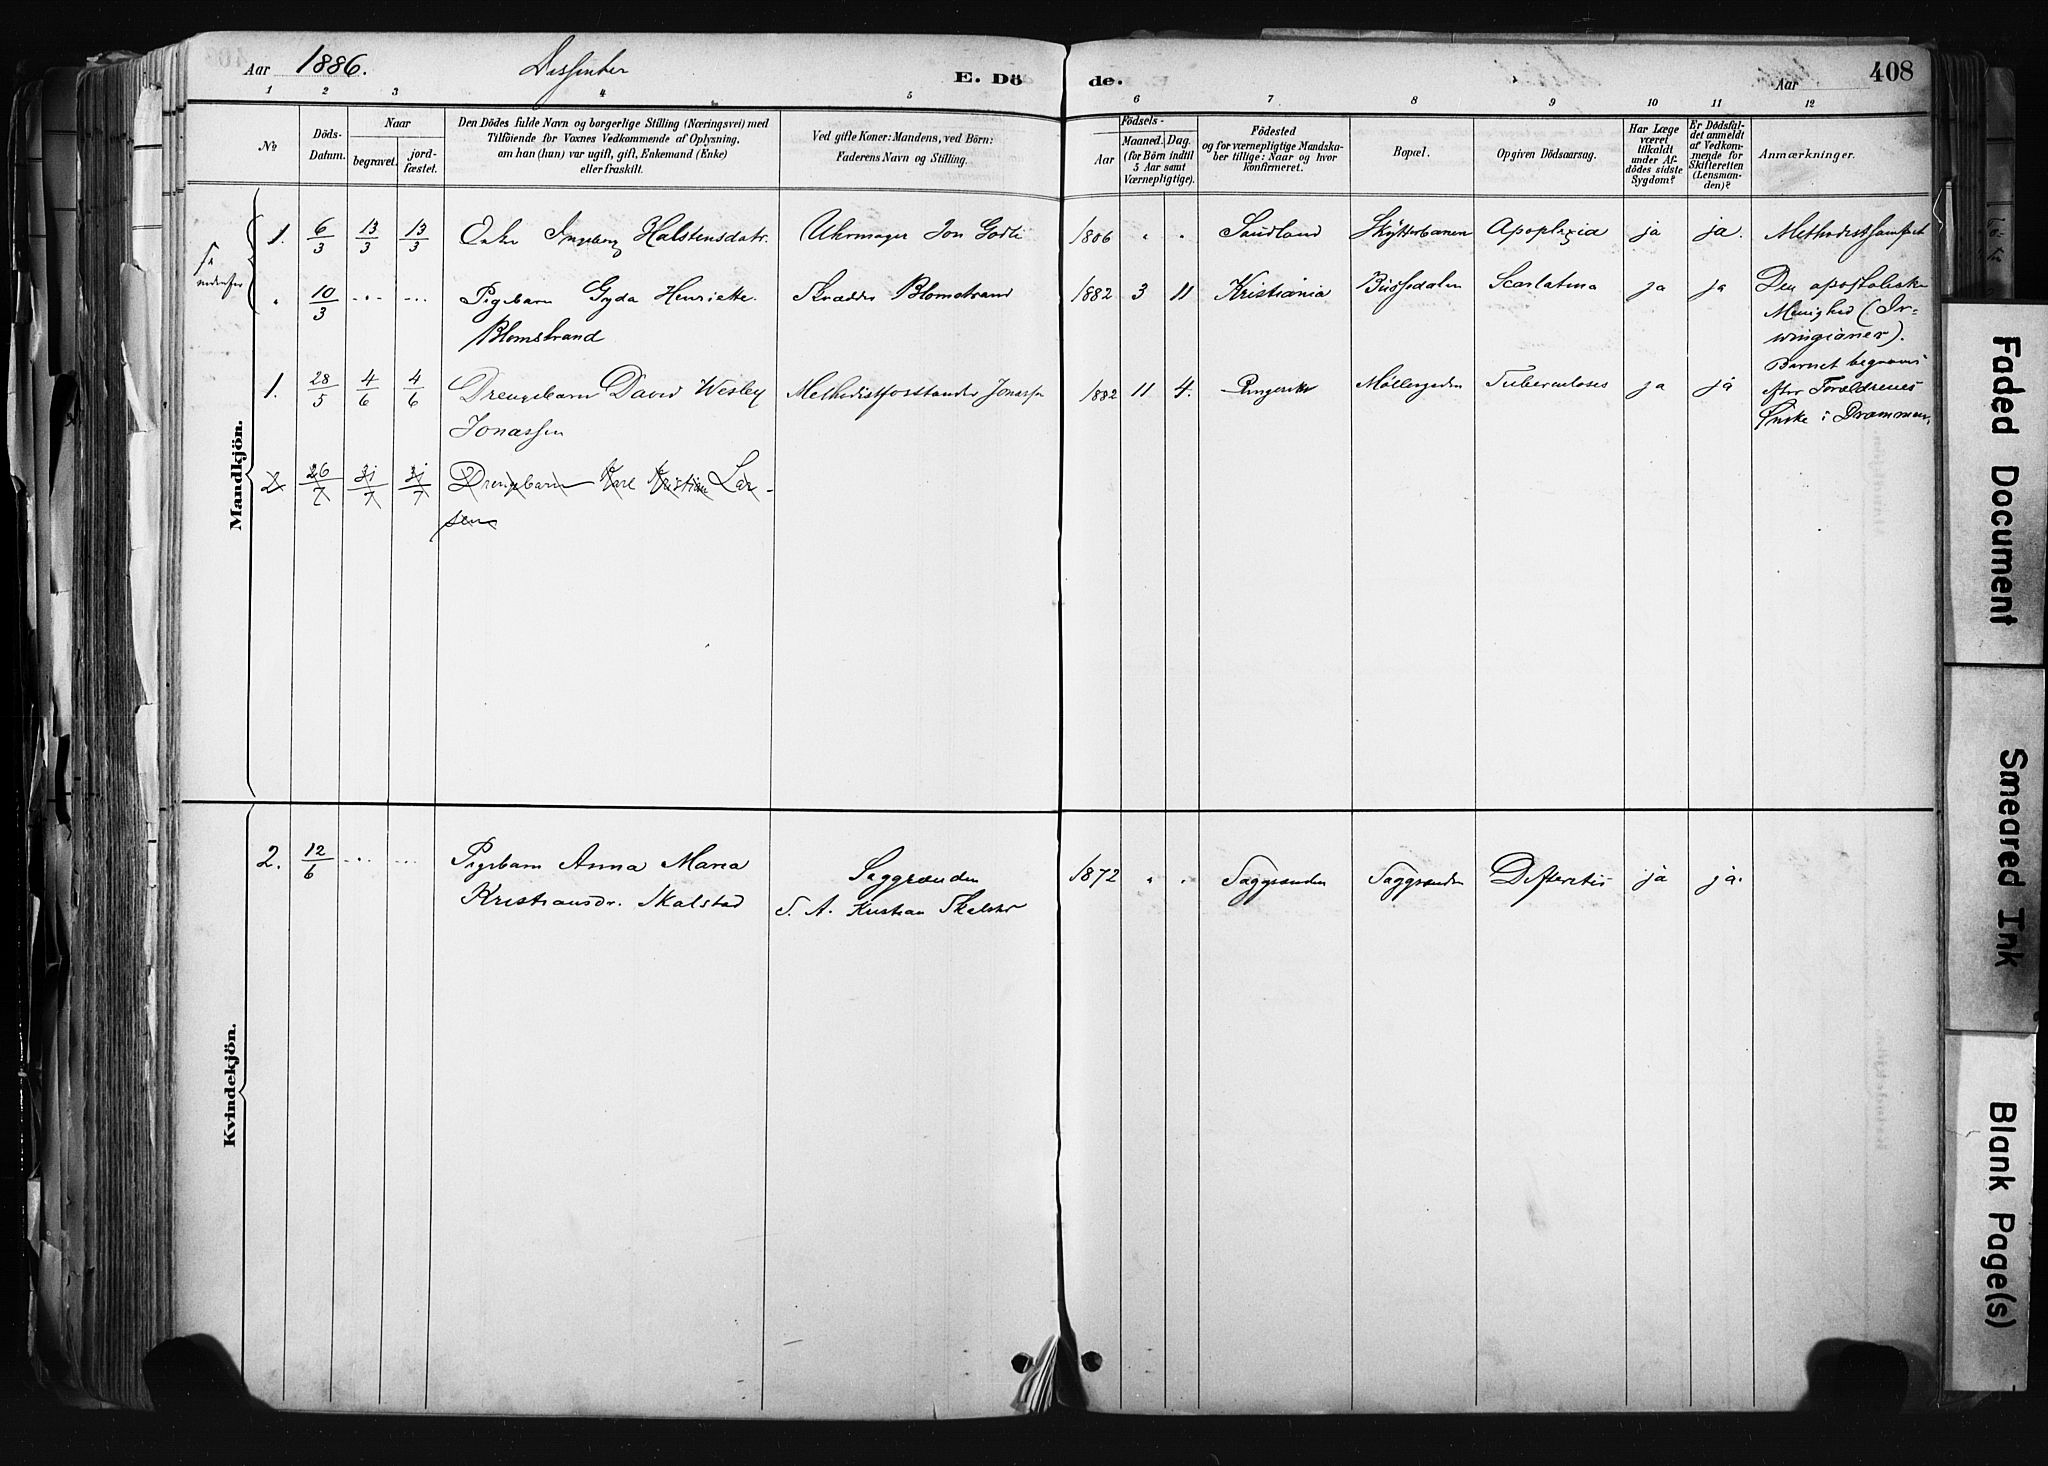 Aar 1886. Dissenter E. Dö de. Aar 408
1 2 3 4 5 6 7 8 9 10 11 12
No
Döds-Datum.
Naar
begravet.
jord-fæstet.
Den Dödes fulde Navn og borgerlige Stilling (Næringsvei) med
Tilföiende for Voxnes Vedkommende af Oplysning,
om han (hun) var ugift, gift, Enkemand (Enke)
eller fraskilt.
Ved gifte Koner: Mandens, ved Börn:
Faderens Navn og Stilling.
Födsels-
Aar
Maaned. Dag.
(for Börn indtil
5 Aar samt
Værnepligtige).
Födested
og for værnepligtige Mandska-
ber tillige: Naar og hvor
konfirmeret.
Bopæl.
Opgiven Dödsaarsag.
Har Læge
været
tilkaldt
under Af-
dödes sidste
Sygdom?
Er Dödsfal-
det anmeldt
af Vedkom-
mende for
Skifteretten
(Lensman-
den)?
Anmærkninger.
Mandkjön.
1. 6/3 13/3 13/3 Enke Ingeborg Halstensdatr. Uhrmager Jon Godli 1806 " " Sandland Skytterbanen Apoplexia ja ja. Methodistsamfnet
" 10/3 ... ... Pigebarn Gyda Henriette Skrædder Blomstrand 1882 3 11 Kristiania Scarlatina ja ja Den apostoliske
Blomstrand Menighed (Ir-
wingianer).
Barnet begraves
1. 28/5 4/6 4/6 Drengebarn David Wesley Methodistforstander Jonassen 1882 11 4. Ringerike Møllergaden Tuberculoses ja ja efter Forældrenes
Jonassen Ønske i Drammen.
2 26/7 31/7 31/7 Drengebarn Karl Kristian Lar-
sen
Kvindekjön.
2. 12/6 ... ... Pigebarn Anna Maria Saggrenden 1872 " " Saggrenden Saggrenden Difteritis ja ja.
Kristiansdr. Skalstad S. A. Kristian Skalstad
Faded Document
Smeared Ink
Blank Page(s)